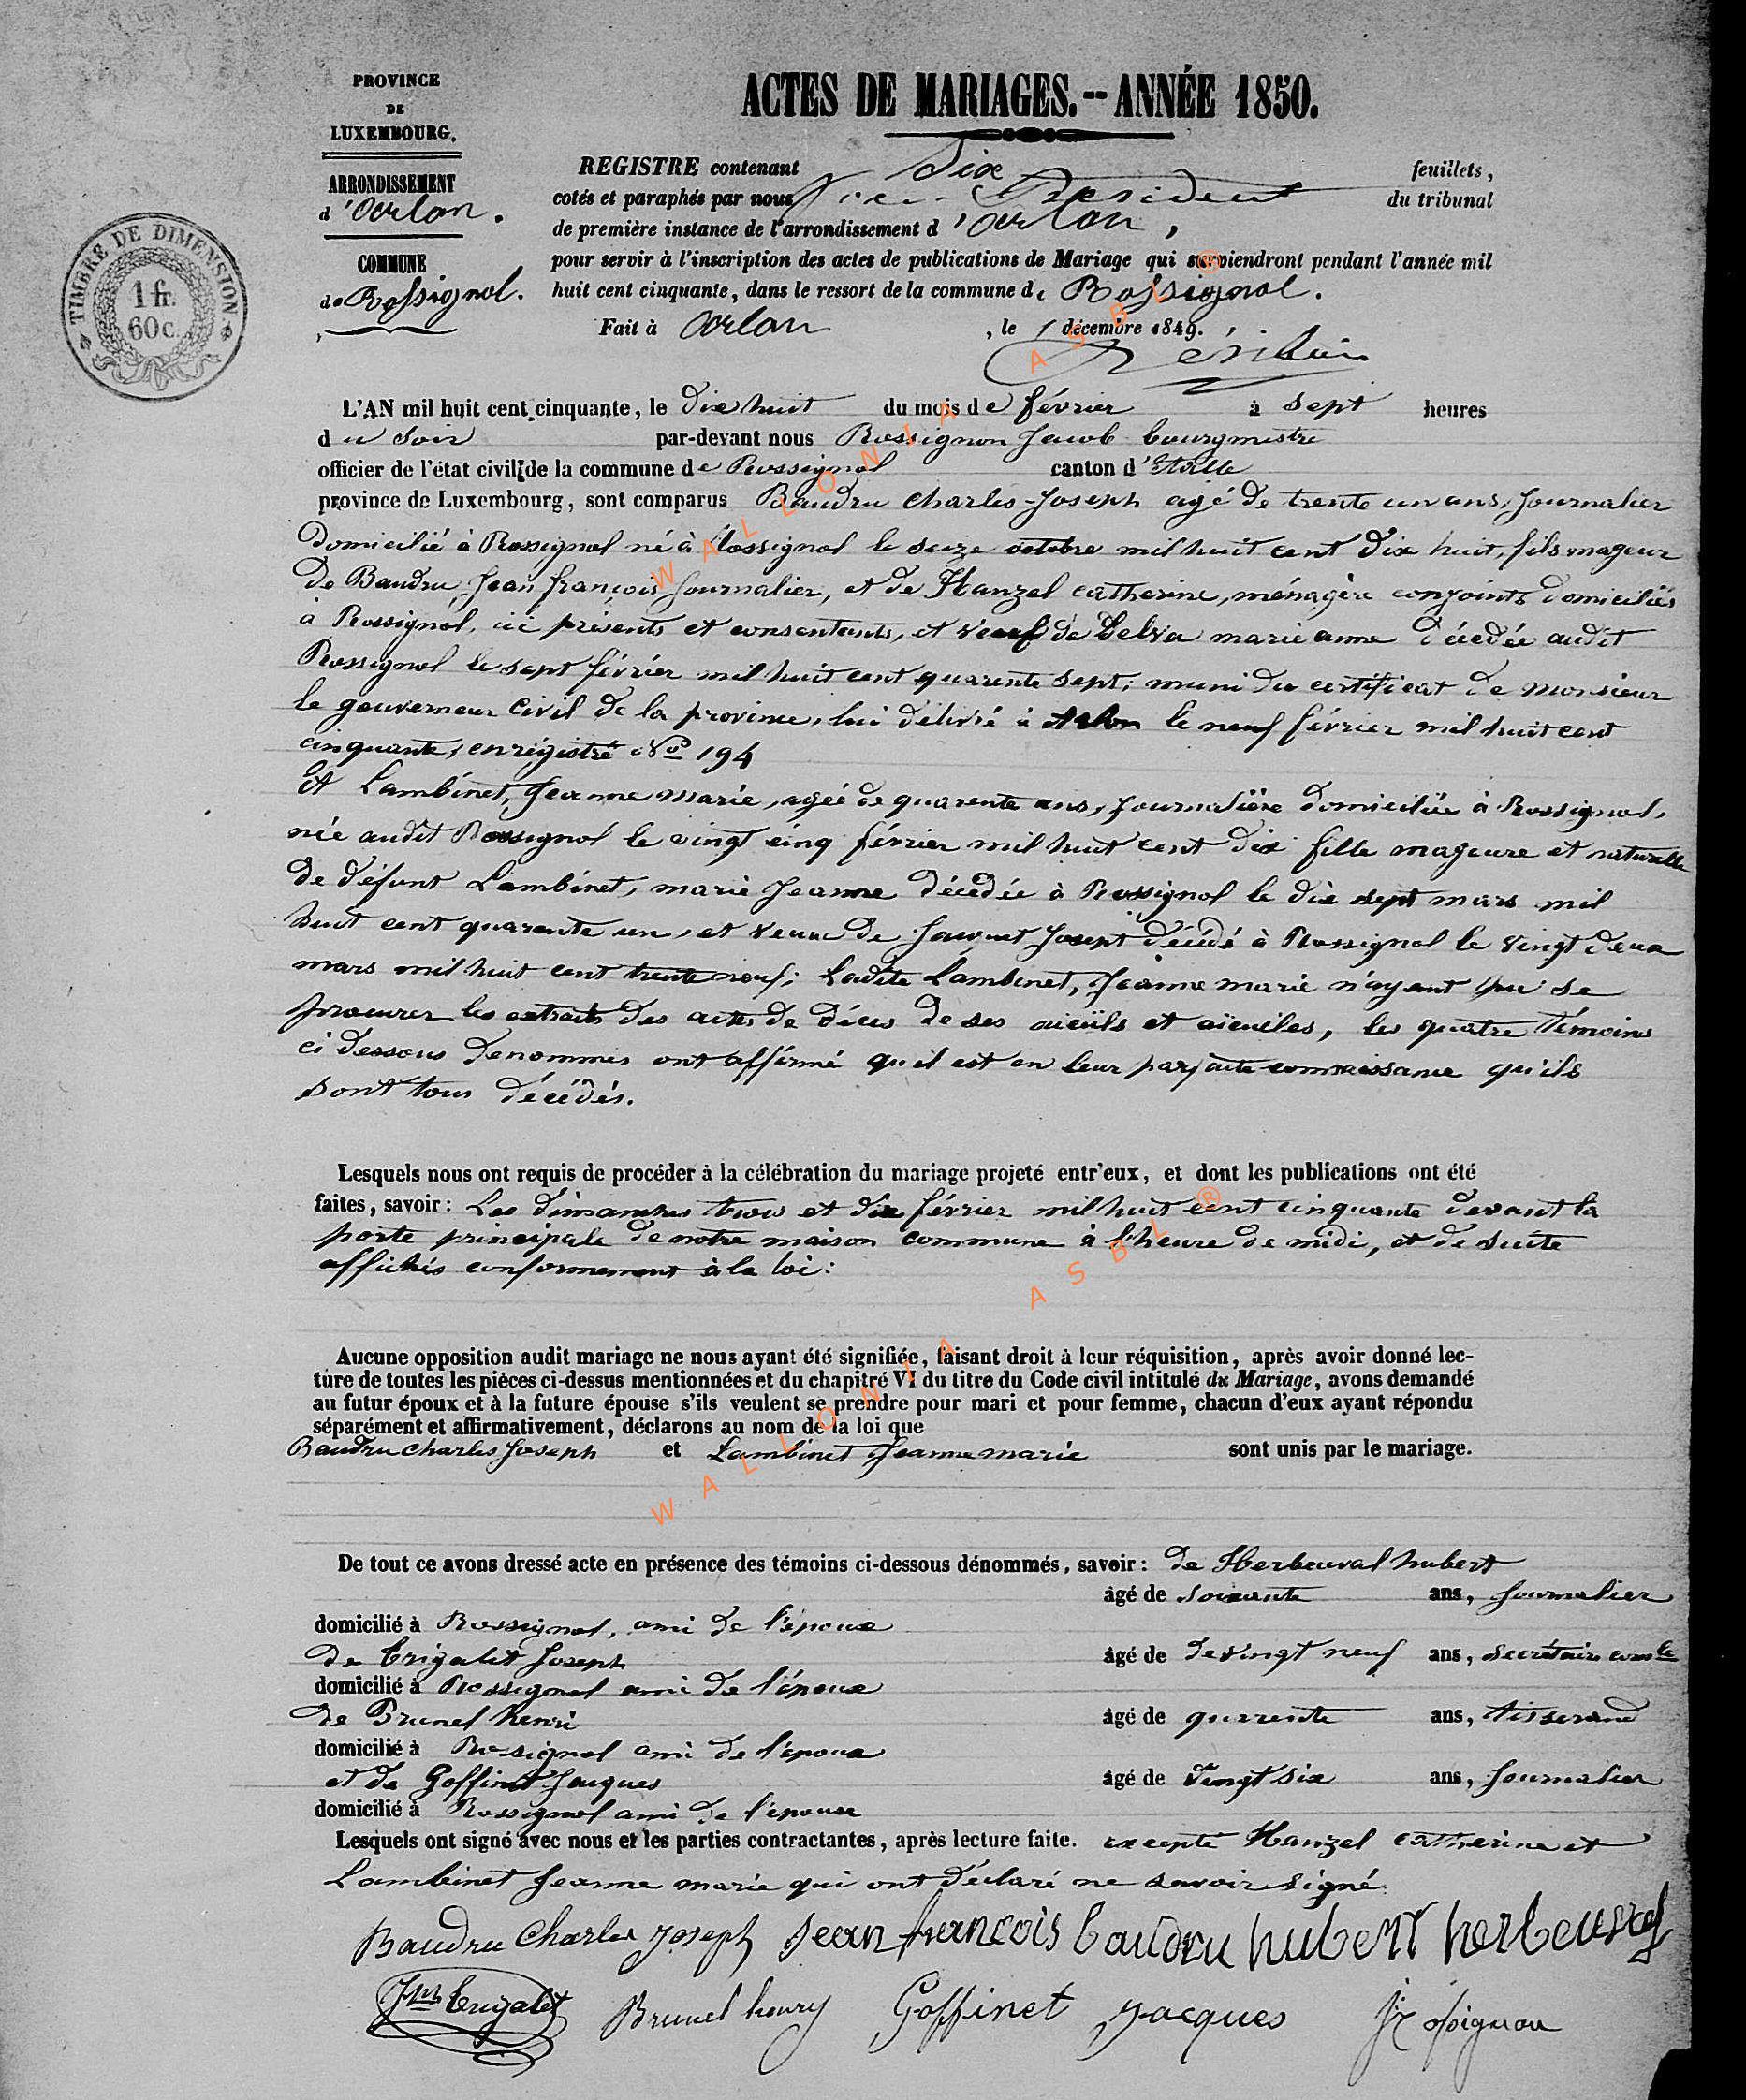 PROVINCE
DE
LUXEMBOURG.
ARRONDISSEMENT
d'Arlon.
COMMUNE
de Rossignol.
TIMBRE DE DIMENSION
1 fr.
60 c.
ACTES DE MARIAGES.--ANNÉE 1850.
REGISTRE contenant Six feuillets,
cotés et paraphés par nous Vice-Président du tribunal
de première instance de l'arrondissement d'Arlon,
pour servir à l'inscription des actes de publications de Mariage qui surviendront pendant l'année mil
huit cent cinquante, dans le ressort de la commune de Rossignol.
Fait à Arlon, le 1 décembre 1849.
L'AN mil huit cent cinquante, le dix huit du mois de février à sept heures
du soir par-devant nous Rossignon Jacob bourgmestre
officier de l'état civil de la commune de Rossignol canton d'Etalle
province de Luxembourg, sont comparus Baudru Charles-Joseph agé de trente un ans, Journalier
Domicilié à Rossignol né à Rossignol le seize octobre mil huit cent dix huit, fils mageur
de Baudru, Jean françois Journalier, et de Hanzel catherine, ménagère conjoints domiciliés
à Rossignol, ici présents et consentants, et veuf de Gelva marie anne décedée audit
Rossignol le sept février mil huit cent quarente sept; muni du certificat de monsieur
le gouverneur Civil de la province, lui délivré à Arlon le neuf février mil huit cent
cinquante, enrégistré No 194
Et Lambinet, Jeanne marie, agée de quarente ans, Journalière domiciliée à Rossignol,
née audit Rossignol le vingt cinq février mil huit cent dix fille mageure et naturelle
de défunt Lambinet, marie Jeanne décédée à Rossignol le dix sept mars mil
huit cent quarente un, et veuve de Joseph décédé à Rossignol le vingt deux
mars mil huit cent trente neuf; Ladite Lambinet, Jeanne marie n'ayant pu se
procurer les extraits des actes de décès de ses aïeuils et aïeuiles, les quatre témoins
ci dessous denommés ont affirmé qu'il est en leur parfaite connaissance qu'ils
sont tous décédés.
Lesquels nous ont requis de procéder à la célébration du mariage projeté entr'eux, et dont les publications ont été
faites, savoir: Les dimanches trois et dix février mil huit cent cinquante devant la
porte principale de notre maison commune à l'heure de midi, et de suite
affichés conformement à la loi:
Aucune opposition audit mariage ne nous ayant été signifiée, faisant droit à leur réquisition, après avoir donné lec-
ture de toutes les pièces ci-dessus mentionnées et du chapitré VI du titre du Code civil intitulé du Mariage, avons demandé
au futur époux et à la future épouse s'ils veulent se prendre pour mari et pour femme, chacun d'eux ayant répondu
séparément et affirmativement, déclarons au nom de la loi que
Baudru Charles Joseph et Lambinet Jeanne marie sont unis par le mariage.
De tout ce avons dressé acte en présence des témoins ci-dessous dénommés, savoir: de Herbeuval hubert
âgé de soixante ans, Journalier
domicilié à Rossignol, ami de l'époux
de Trigalet Joseph âgé de de vingt neuf ans, secrétaire comle
domicilié à Rossignol ami de l'époux
de Brunel henri âgé de quarente ans, tisserand
domicilié à Rossignol ami de l'époux
et de Goffinet Jacques âgé de vingt six ans, Journalier
domicilié à Rossignol ami de l'épouse
Lesquels ont signé avec nous et les parties contractantes, après lecture faite. excepté Hanzel catherine et
Lambinet Jeanne marie qui ont déclaré ne savoir signé.
Baudru Charles Joseph Jean francois baudru hubert herbeuval
Jph Trigalet Brunel henry Goffinet Jacques J Rossignon
WALLONIA ASBL ®
WALLONIA ASBL ®